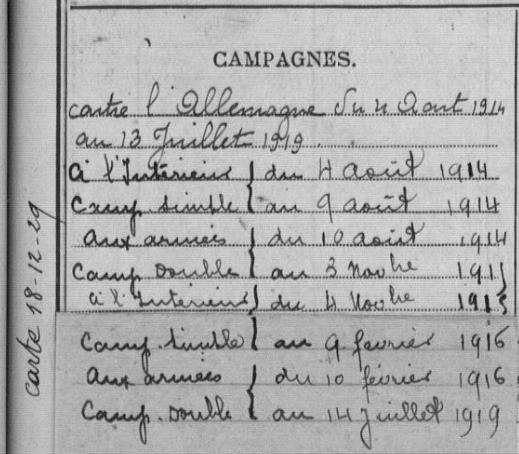 CAMPAGNES.
contre l'Allemagne du 4 Aout 1914
au 13 Juillet 1919.
à l'Intérieur } du 4 août 1914
Camp. simple { au 9 août 1914
aux armées } du 10 août 1914
Camp. double { au 3 Novbre 1915
à l'Intérieur } du 4 Novbre 1915
Camp. simple { au 9 février 1916
aux armées } du 10 février 1916
Camp. double { au 14 Juillet 1919
carte 18-12-29